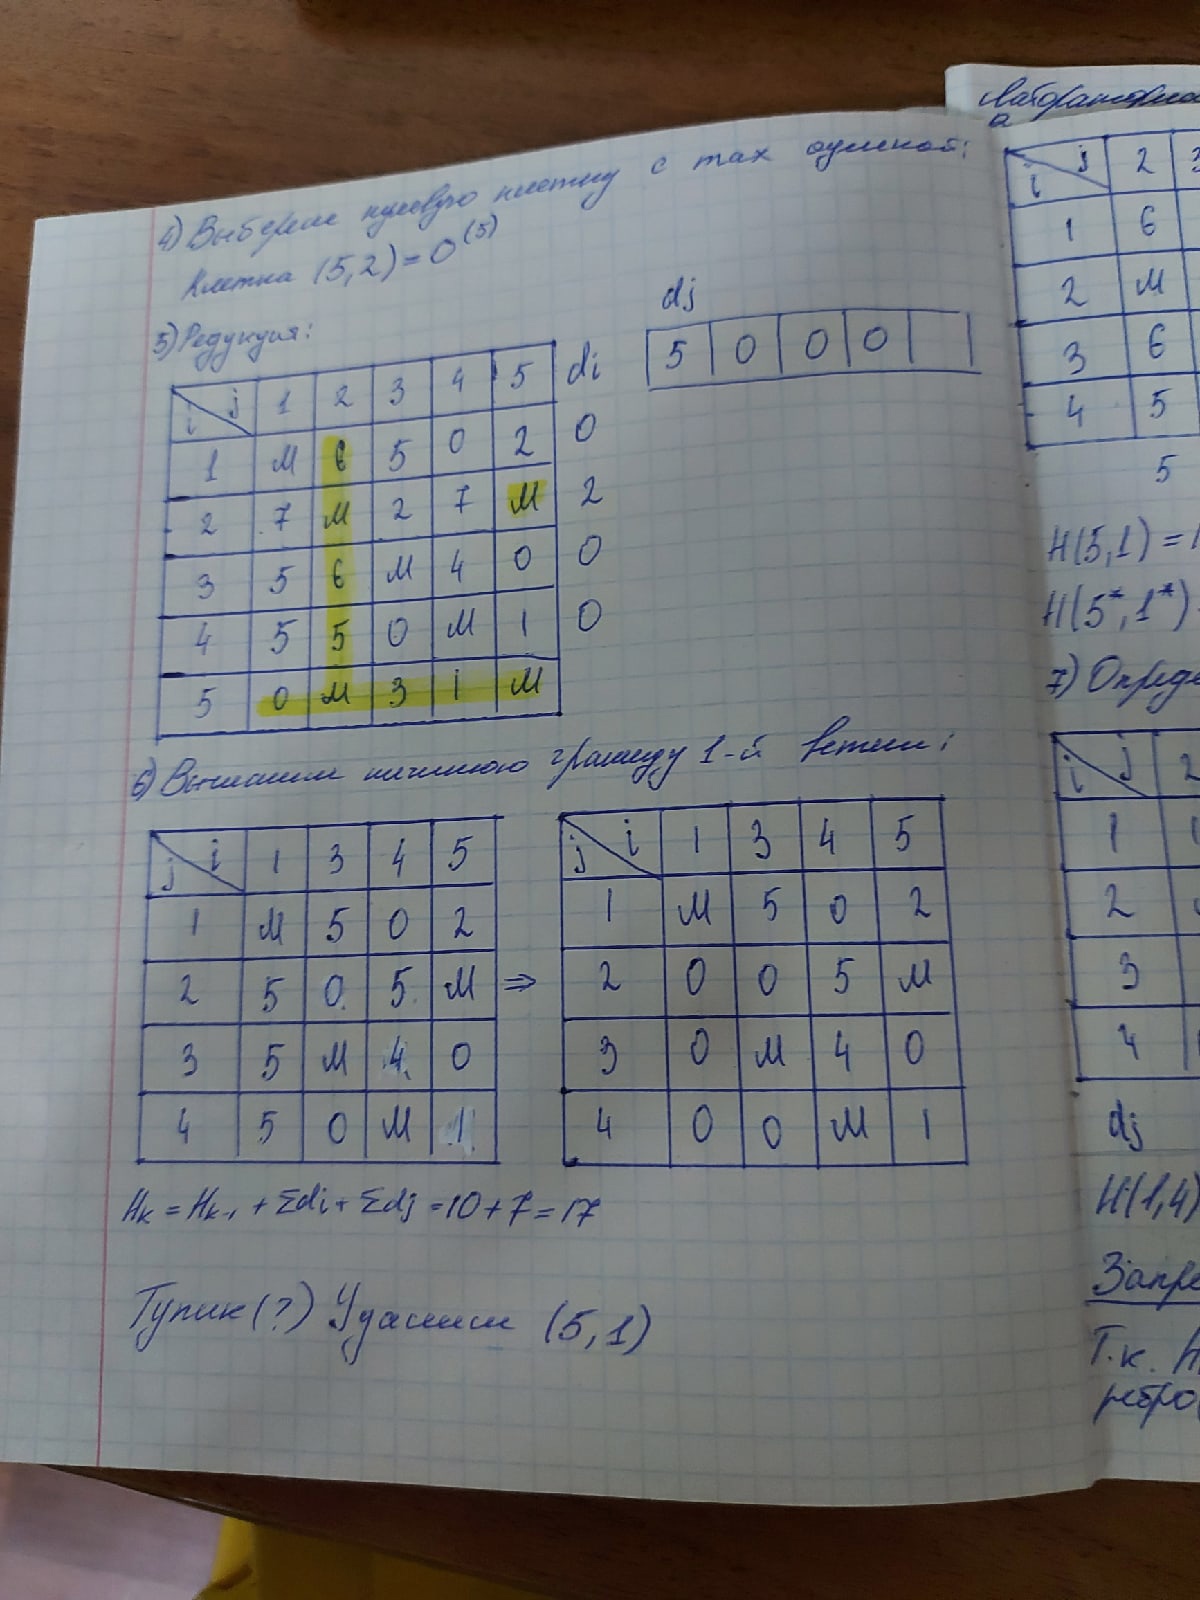 4) Выберем нулевую клетку с max оценкой:
Клетка (5,2) = 0^(5)
5) Редукция:
dj
5 0 0 0
i j 1 2 3 4 5 di
1 М 6 5 0 2 0
2 7 М 2 7 М 2
3 5 6 М 4 0 0
4 5 5 0 М 1 0
5 0 М 3 1 М
6) Вычислим нижнюю границу 1-й ветви:
j i 1 3 4 5
1 М 5 0 2
2 5 0 5 М
3 5 М 4 0
4 5 0 М 1
⇒
j i 1 3 4 5
1 М 5 0 2
2 0 0 5 М
3 0 М 4 0
4 0 0 М 1
Hk = Hk-1 + Σdi + Σdj = 10 + 7 = 17
Тупик (?) Удалим (5,1)
i j 2
1 6
2 М
3 6
4 5
5
H(5,1) = 1
H(5*,1*)
7) Опреде
i j 2
1
2
3
4
dj
H(1,4)
Запре
Т.к. H
ребро